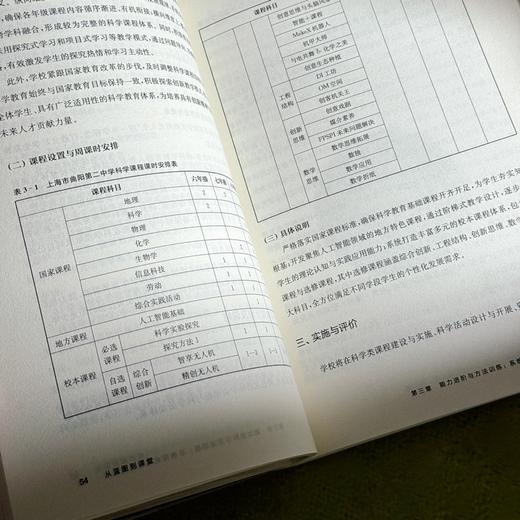 确保各年级课程内容循序渐进、有机衔接,
学科融合,形成较为完整的科学课程体系。同时,
采用探究式学习和项目式学习等教学模式,通过问题
有效激发学生的探究热情和学习主动性。
此外,学校紧跟国家教育改革的步伐,及时调整科学课
学教育始终与国家教育目标保持一致,积极探索创新教学
全体学生、具有广泛适用性的科学教育体系,为培养具有创新精神
未来人才贡献力量。
(二)课程设置与周课时安排
表3-1 上海市曲阳第二中学科学课程课时安排表
课程科目 六年级 七年级
国家课程
地理 2 2
科学 2
物理
化学
生物学
信息科技 1
劳动 1 1
综合实践活动 1
人工智能基础
地方课程
科学实验探究
校本课程
必选课程
探究方法1
自选课程
综合创新
智享无人机 [-]
精创无人机
54 从蓝图到课堂
课程科目
创意思维与头脑
智能+课程
MakeX机器人
机甲大师
与电共舞&化学之美
创意生态种植
工程结构
DI工坊
OM空间
创客机关王
创新思维
创意戏剧
媒合素养
FPSPI未来问题解决
数学思维
数学思维拓展
数独
数学应用
数学折纸
(三)具体说明
严格落实国家课程标准,确保科学教育基础课程开齐开足,为学生夯实
根基;开发聚焦人工智能领域的地方特色课程,通过阶梯式教学设计,逐步
学生的理论认知与实践应用能力;系统打造丰富多元的校本课程体系,
课程与选修课程,其中选修课程涵盖综合创新、工程结构、创新思维、数学
大科目,全方位满足不同学段学生的个性化发展需求。
三、实施与评价
学校将在科学类课程建设与实施、科学活动设计与开展、
第三章 能力进阶与方法训练:系统